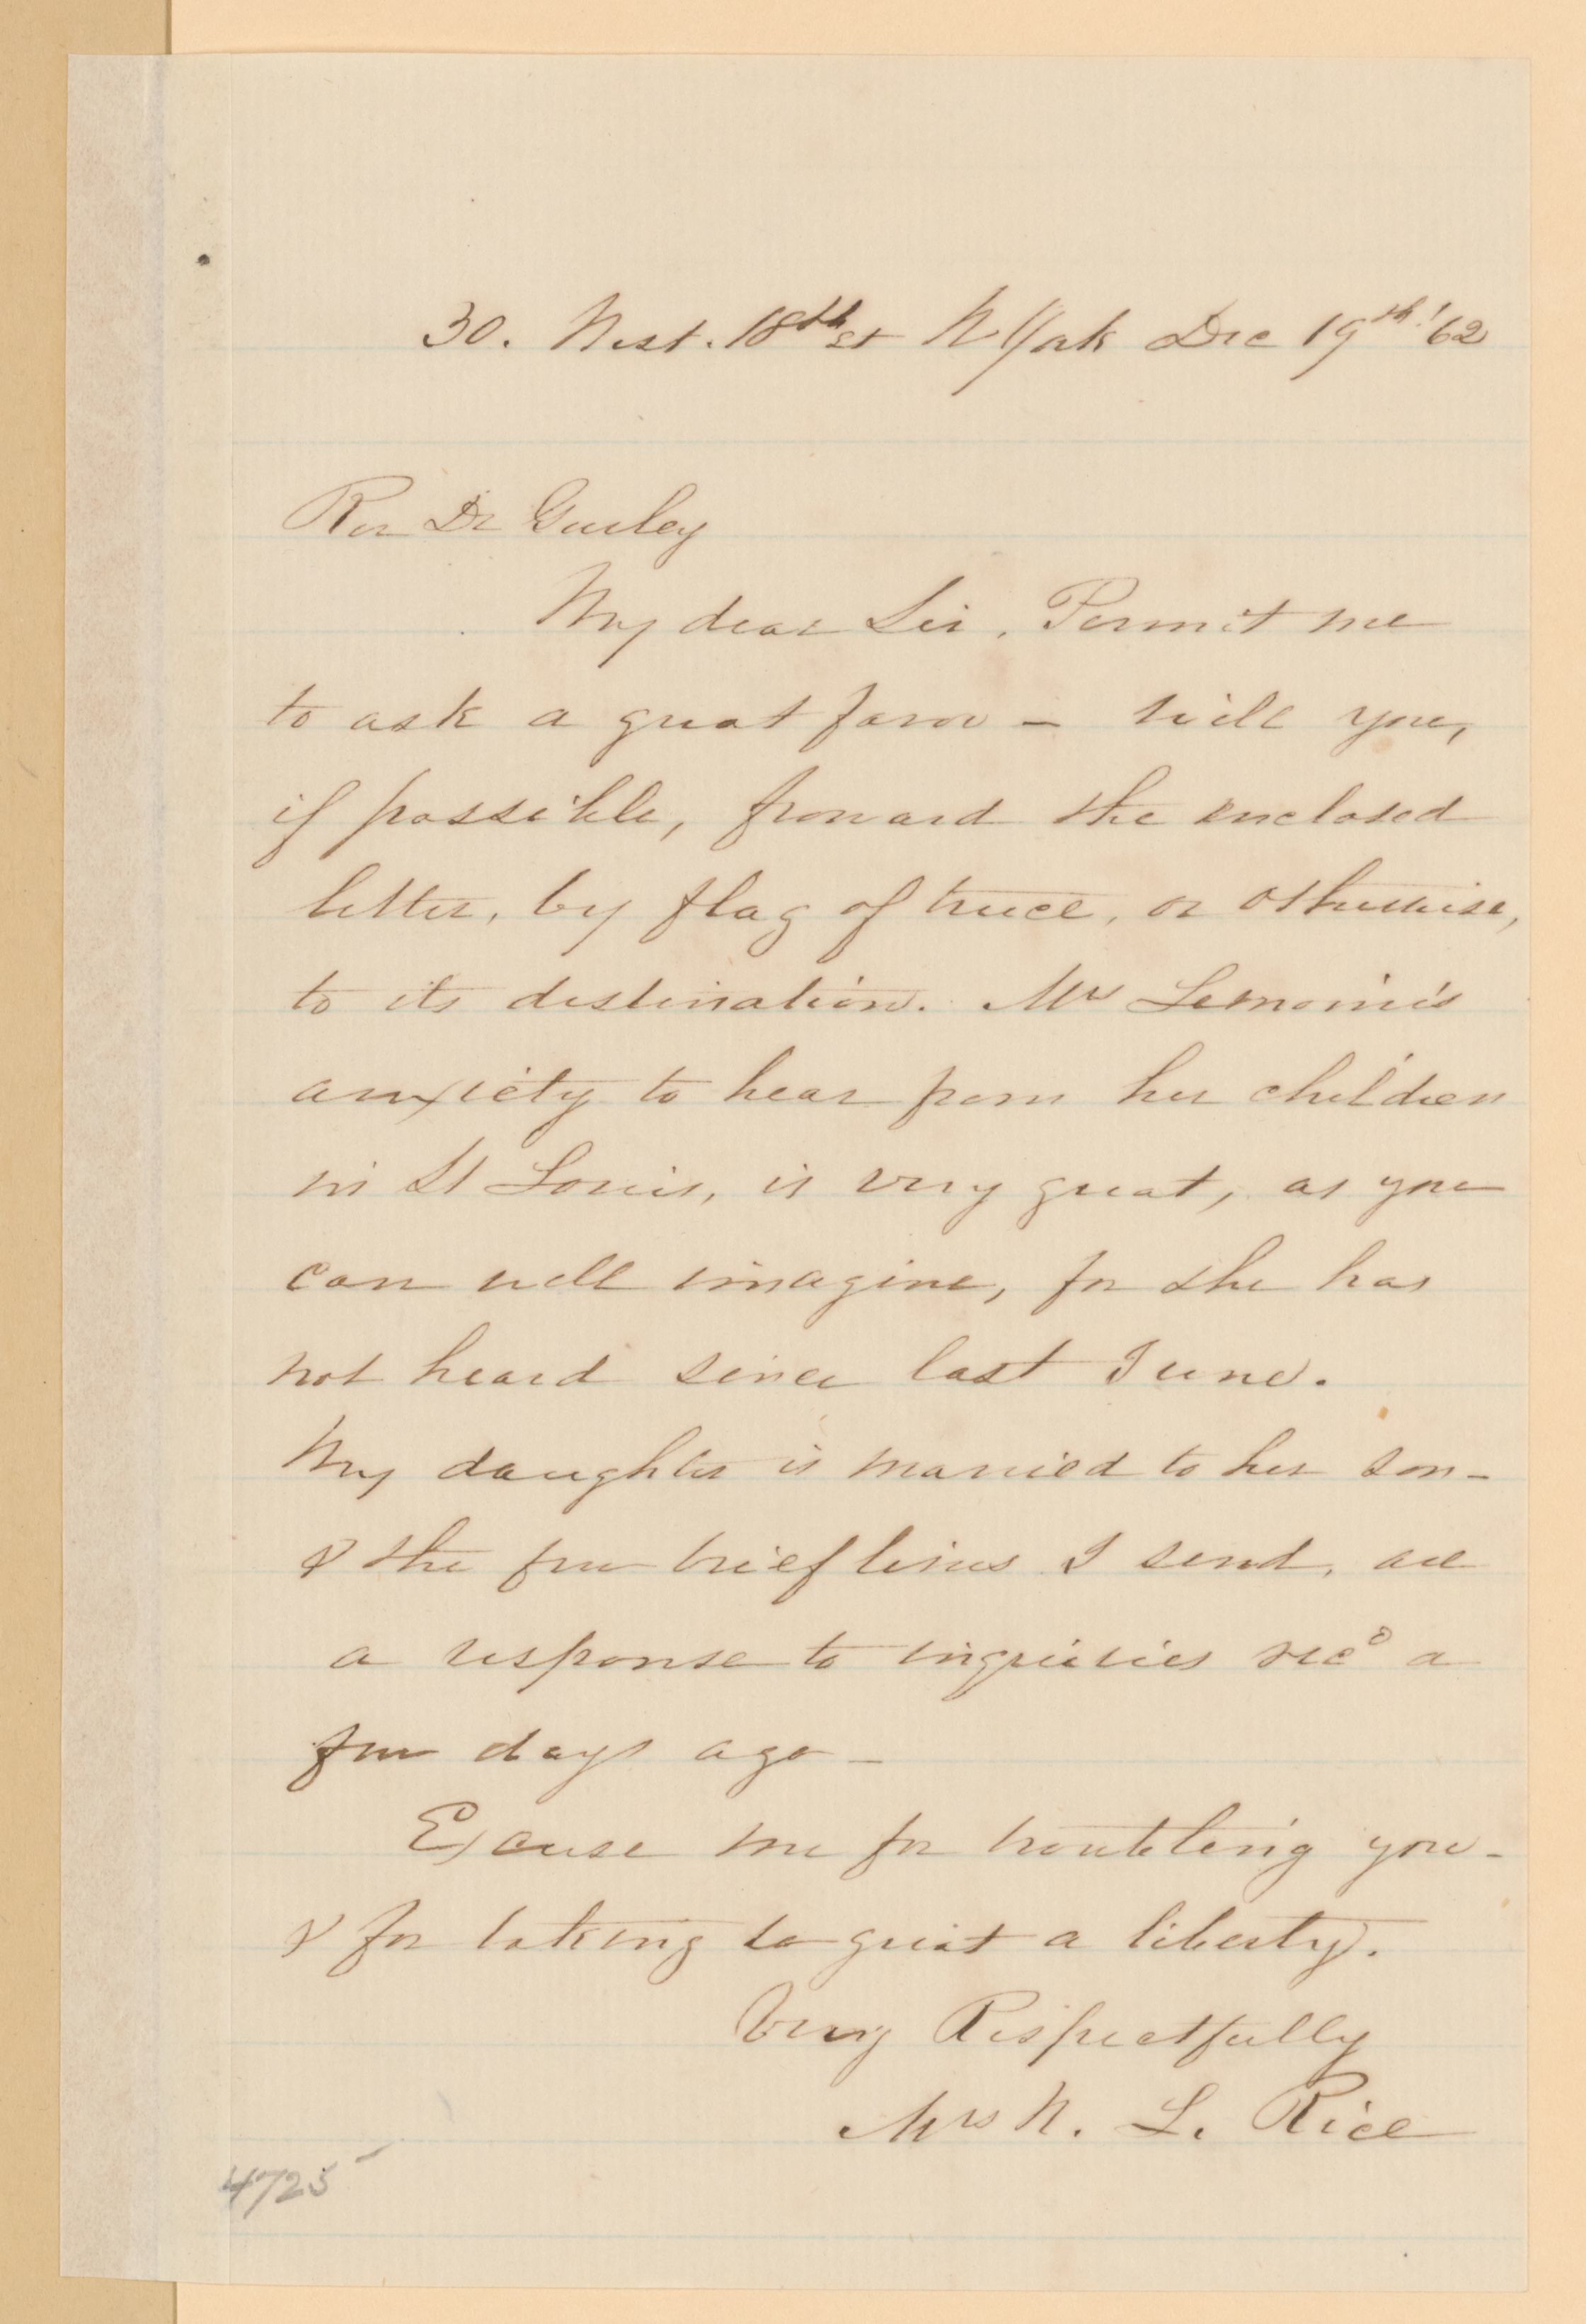 30. West. 18th st N York Dec 19th '62
Rev Dr Gurley
My dear Sir, Permit me
to ask a great favor – will you,
if possible, forward the enclosed
letter, by flag of truce, or otherwise,
to its destination. Mrs Lemoine's
anxiety to hear from her children
in St Louis, is very great, as you
can well imagine, for she has
not heard since last June.
My daughter is married to her son –
& the few brief lines I send, are
a response to inquiries recd a
few days ago –
Excuse me for troubling you –
& for taking so great a liberty.
Very Respectfully
Mrs N. L. Rice
4725